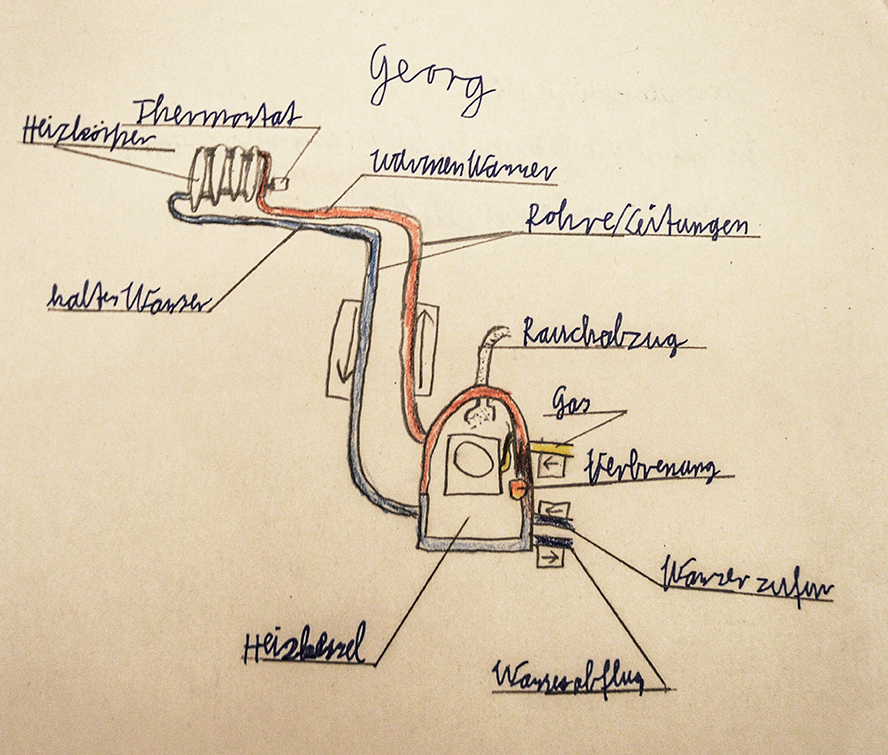 Georg
Thermostat
Heizkörper
warmen Wasser
Rohre/Leitungen
kaltes Wasser
Rauchabzug
Gas
Verbrenung
Wasser
Heizkessel
Wasserabflug